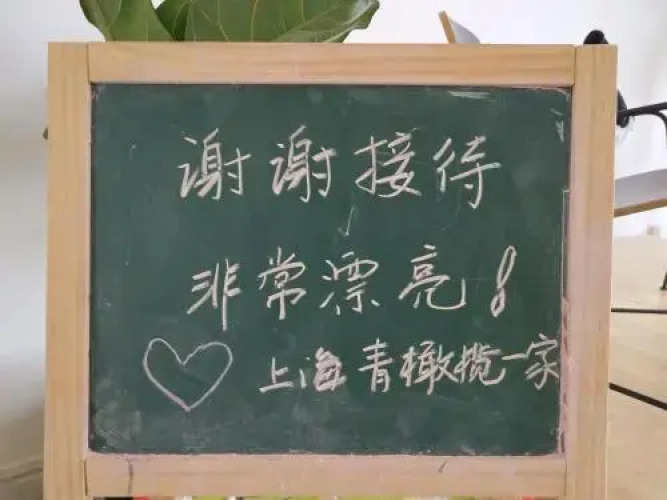 谢谢接待
非常漂亮!
上海青橄榄一家